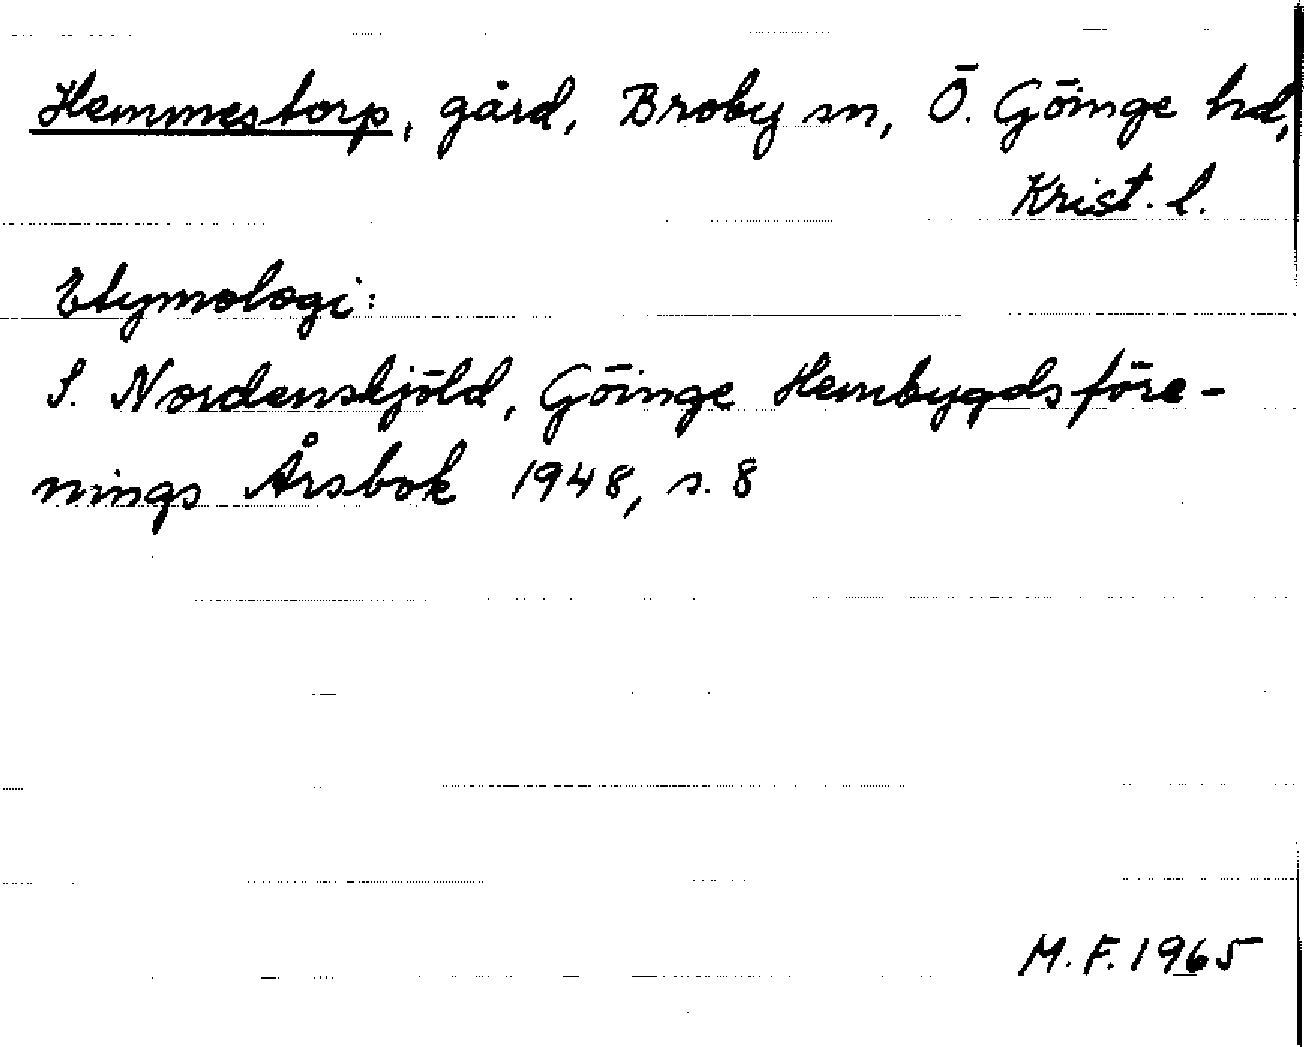 Hemmestorp, gård, Broby sn, Ö. Göinge hd,
Krist. l.
Etymologi:
S. Nordenskjöld, Göinge Hembygdsföre-
nings Årsbok 1948, s. 8
M.F. 1965